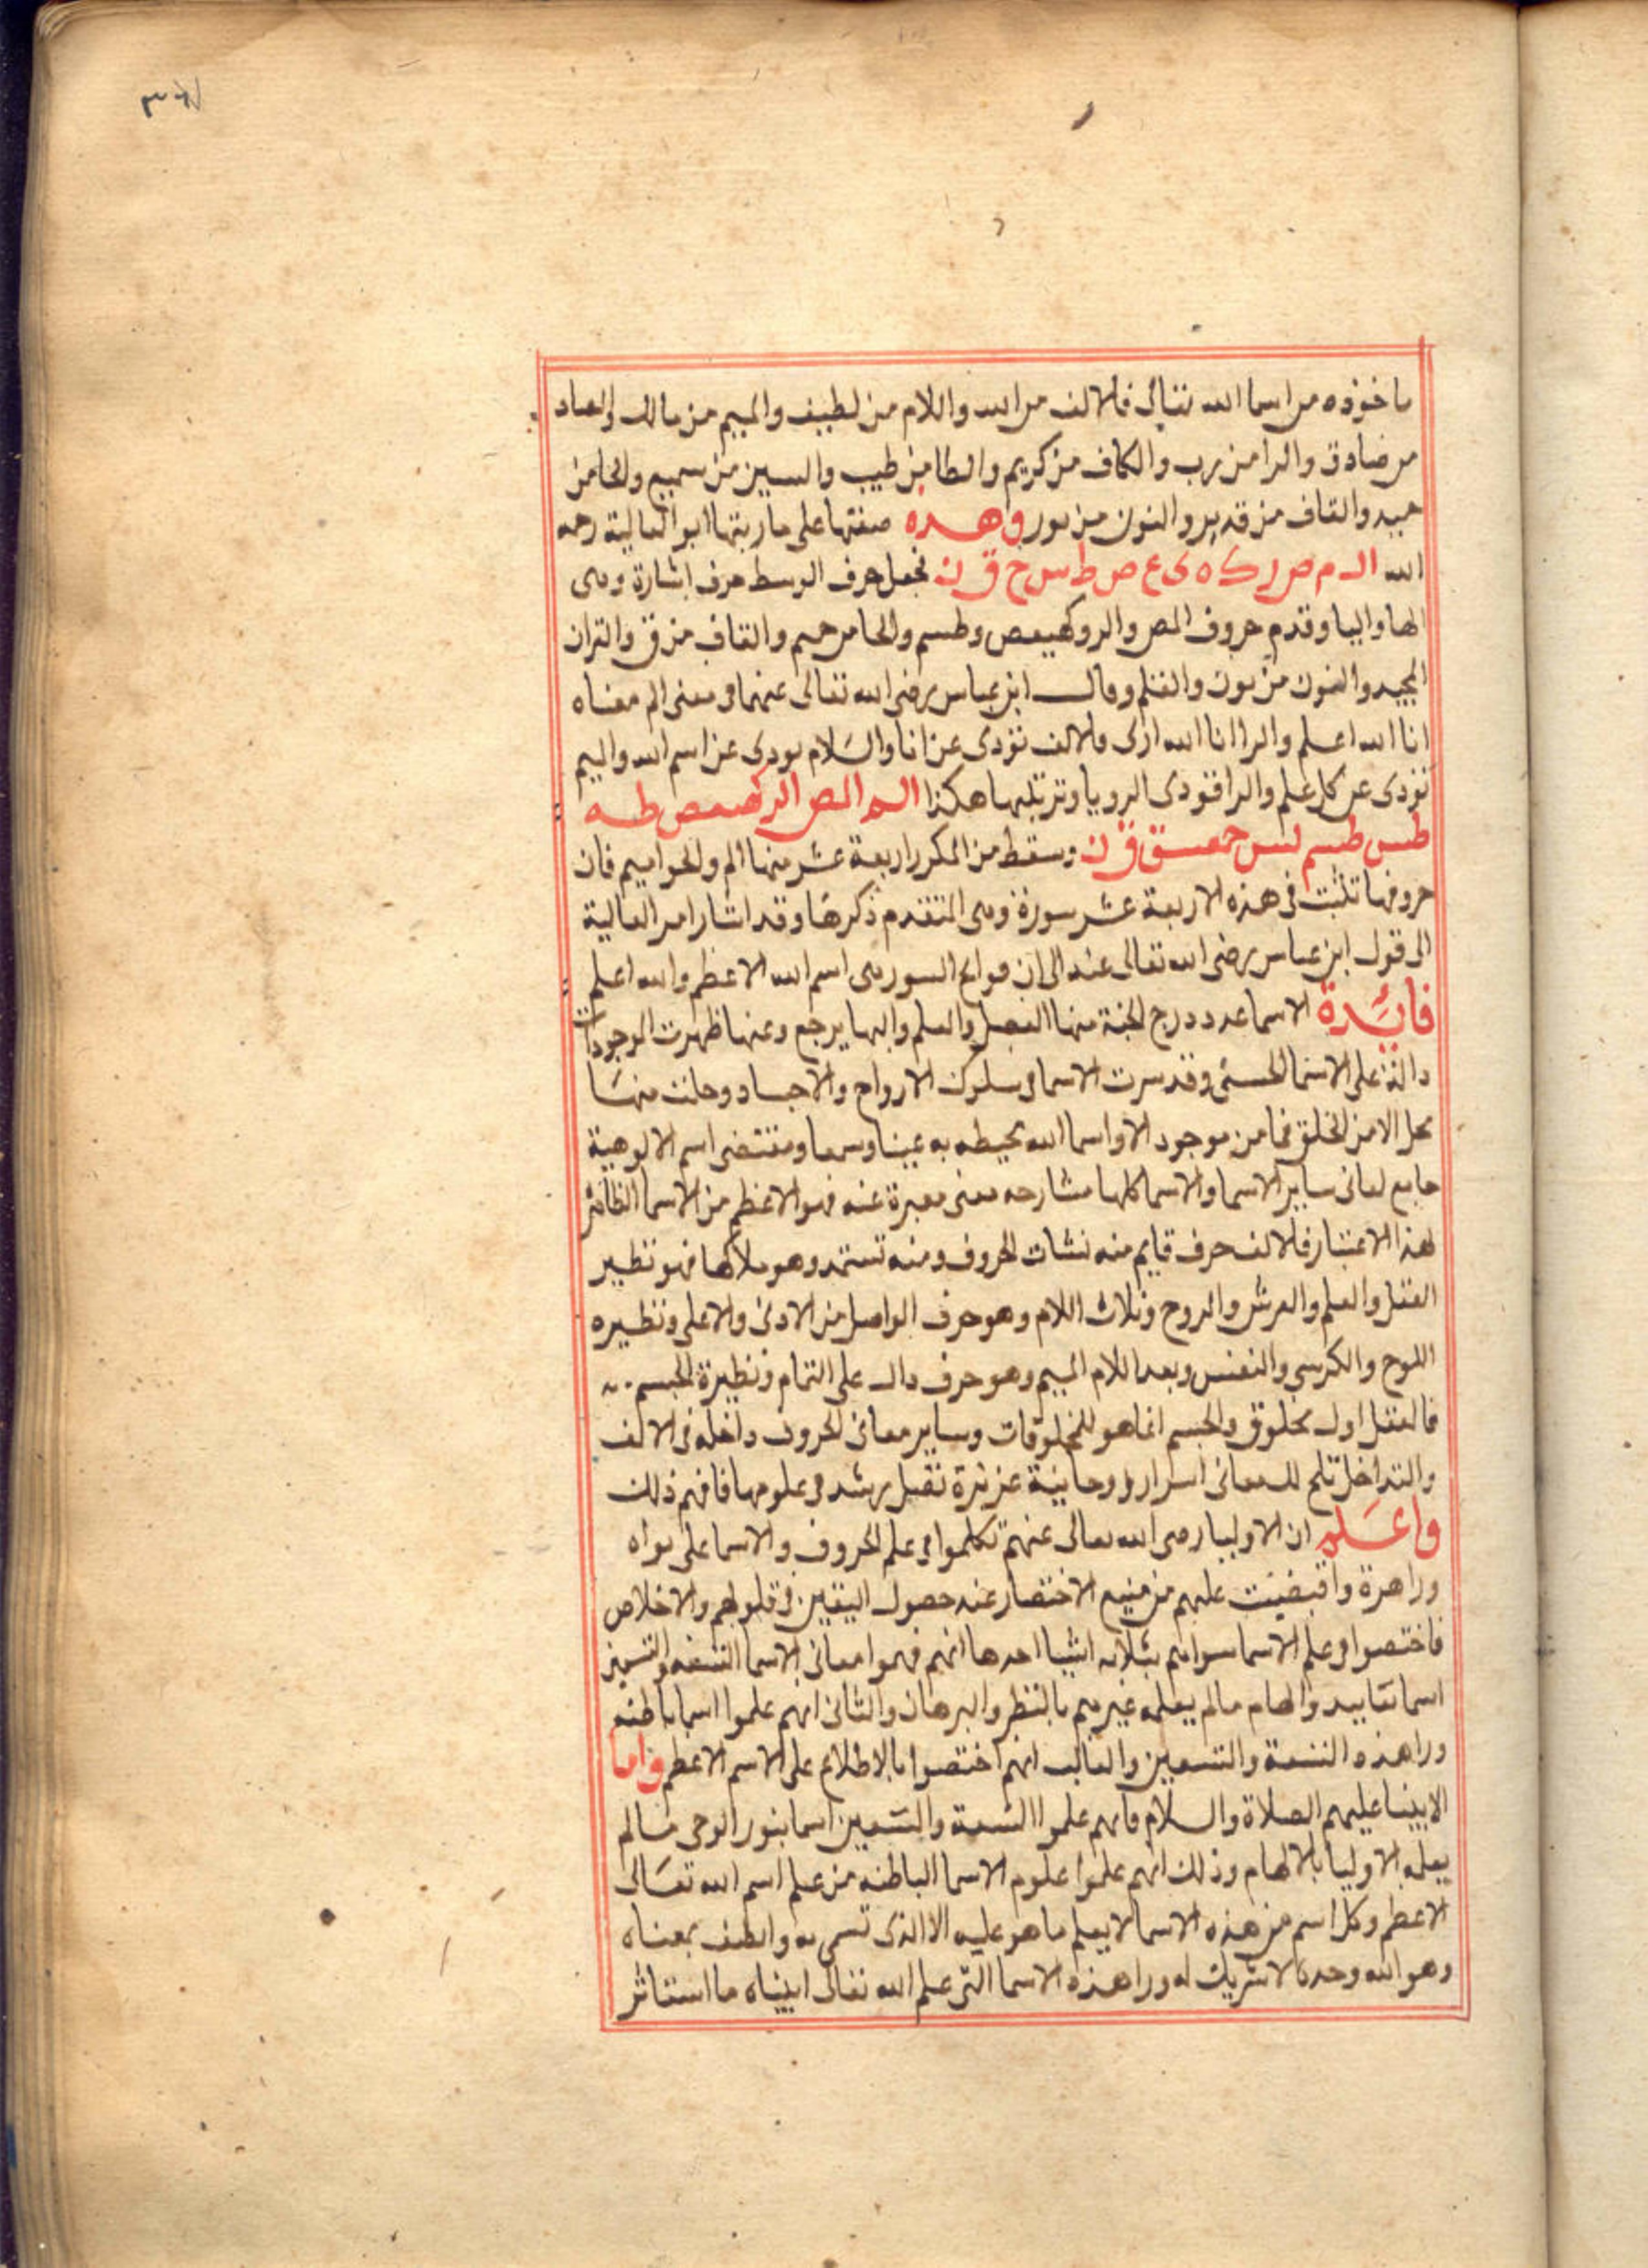 ماخوذه من اسما الله تعالى فالالف من الله واللام من لطيف والميم من مالك والصاد
من صادق والرا من رب والكاف من كريم والطا من طيب والسين من سميع والحا من
حميد والقاف من قدير والنون من نور وهذه صفتها على ما رتبها ابو العالية رحمه
الله ال م ص ر ك ه ى ع ص ط س ح ق ن فجعل حرف الوسط حرف اشارة وهى
الها واليا وقدم حروف المص والر وكهيعص وطسم والحا من حميم والقاف من ق والقران
المجيد والنون من نون والقلم وقال ابن عباس رضى الله تعالى عنهما فى معنى الم معناه
انا الله اعلم والرا انا الله ارى فالالف تؤدى عن انا واللام يودى عن اسم الله والميم
تؤدى عن كل علم والرا فتودى الرويا وترتيبها هكذا الم المص الر كهيعص طه
طس طسم يس حمعسق ق ن وسقط من المكرر اربعة عشر منها الم والحواميم فان
حروفها تثبت فى هذه الاربعة عشر سورة وهى المتقدم ذكرها وقد اشار امر العالية
الى قول ابن عباس رضى الله تعالى عنه الى ان فواتح السور هى اسم الله الاعظم والله اعلم
فائدة الاسما عدد درج الجنة منها الفصل والعلم واليها يرجع وعنها ظهرت الموجودات
دالة على الاسما الحسنى وقد سرت الاسما فى سلوك الارواح والاجساد وحلت منها
محل الامر الخلق فما من موجود الا واسما الله محيطه به عينا وسما ومقتضى اسم الالوهية
جامع لمعانى ساير الاسما والاسما كلها مشارحه معنى معبرة عنه فهو الاعظم من الاسما
لهذا الاعتبار فالالف حرف قايم منه نشات الحروف ومنه تستمد وهو ملاكها فهو نظير
العقل والعلم والعرش والروح وتلاه اللام وهو حرف الواصل من الادنى والاعلى ونظيره
اللوح والكرسى والنفس وبعد اللام الميم وهو حرف دال على التمام ونظيرة الجسم
فالعقل اول مخلوق والجسم انما هو للمخلوقات وساير معانى الحروف داخله فى الالف
والتداخل تلح للمعانى اسرار روحانية عزيزة نقبل برشد فى علومها فافهم ذلك
واعلم ان الاوليا رضى الله تعالى عنهم تكلموا فى علم الحروف والاسما على
الاختصار عنه حصول اليقين فى قلوبهم والاخلاص
فاختصوا فى علم الاسما سواهم بثلاثه اشيا احدها انهم فهموا معانى الاسما التسعه والتسعين
اسما بتاييد والهام مالم يعلمه غيرهم بالنظر والبرهان والثانى انهم علموا اسما باطنه
ورا هذه التسعة والتسعين والثالث انهم اختصوا بالاطلاع على الاسم الاعظم واما
الانبيا عليهم الصلاة والسلام فانهم علموا التسعة والتسعين اسما بنور الوحى مالم
يعلمه الاوليا بالالهام وذلك انهم علموا علوم الاسما الباطنه من علم اسم الله تعالى
الاعظم وكل اسم من هذه الاسما لا يعلم ما هو عليه الا الذى تسمى به واتصف بمعناه
وهو الله وحده لا شريك له ورا هذه الاسما التى علم الله تعالى انبياه ما استاثر